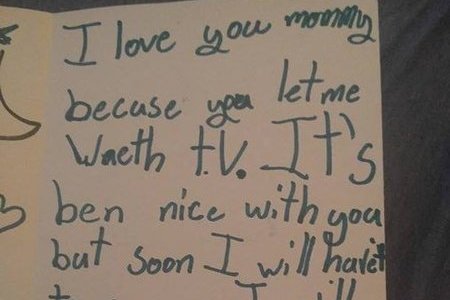 I love you mommy
becuse you let me
Waeth t.v. It's
ben nice with you
but soon I will have
I will